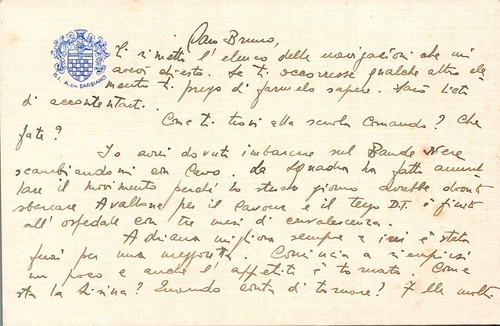 R.I. A. DA BARBIANO
Caro Bruno,
Ti rimetto l'elenco delle navigazioni che mi
avevi chiesto. Se ti occorresse qualche altro ele
mento ti prego di farmelo sapere. Sarò lieto
di accontentarti.
Come ti trovi alla scuola Comando? Che
fate?
Io avrei dovuto imbarcare sul Bande Nere
scambiandomi con Cavo. La Squadra ha fatto annul
lare il movimento perché lo stesso giorno avrebbe dovuto
sbarcare Avallone per il Cavour e il terzo D.T. è finito
all'ospedale con tre mesi di convalescenza.
Adriana migliora sempre e ieri è stata
fuori per una mezzoretta. Comincia a riempirsi
un poco e anche l'appetito è tornato. Come
sta la? Quando conta di tornare? È molto